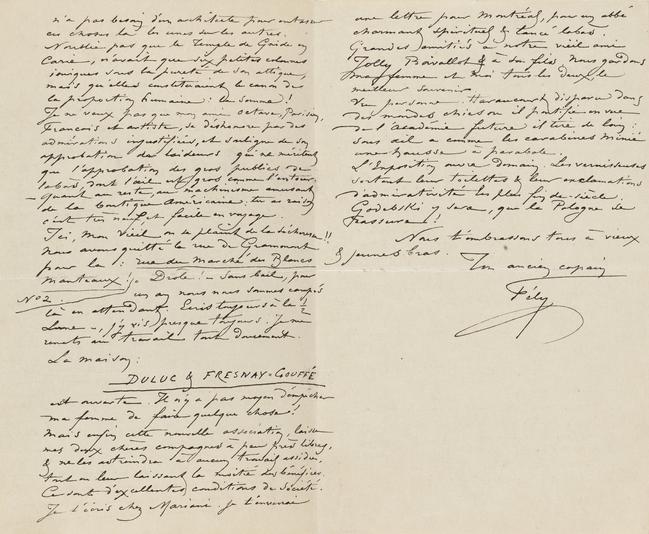 n'a pas besoin d'un architecte pour entasser
ces choses là les unes sur les autres.
N'oublie pas que le Temple de Gnide en
Carie, n'avait que six petites colonnes
ioniques sous la pureté de son attique,
mais qu'elles constituaient le canon de
la proportion humaine: la somme!
Je ne veux pas que mon ami Octave, Parisien,
Français et artiste, se déshonore par des
admirations injustifiées, et souligne de son
approbation des laideurs qui ne méritent
que l'approbation des gros publics de
labas, dont l'œil est gros comme l'entour,
— Quant au reste, au machinisme amusant
de la boutique Américaine, tu as raison
c'est très neuf et facile en voyage.
Ici, mon Vieil on se plaint de la sécheresse!!
Nous avons quitté la rue de Grammont
pour la: rue du Marché des Blancs
Manteaux! Drôle! — Sans bail, pour
N° 2. un an nous nous sommes campés
là en attendant. Ecris toujours à la ½
Lune —, j'y vis presque toujours. Je me
remets au travail tout doucement.
La maison:
DULUC & FRESNAY-GOUFFÉ
est ouverte. Il n'y a pas moyen d'empêcher
ma femme de faire quelque chose!
Mais enfin cette nouvelle association, laisse
mes deux chères compagnes à peu près libres,
& ne les astreindra à aucun travail assidu,
tout en leur laissant la moitié des bénéfices.
Ce sont d'excellentes conditions de société.
Je t'écris chez Mariani. Je t'enverrai
une lettre pour Montréal, pour un abbé
charmant spirituel & lancé labas.
Grandes amitiés à notre vieil ami
Jolly Boivallot & à son fils. Nous gardons
ma femme et moi tous les deux, le
meilleur souvenir
Vu personne. Haraucourt disparu dans
des mondes chics où il pontifie en vue
de l'Académie future et tire de loin,
sans œil a comme les carabines Minié
une hausse à parabole.
L'Exposition ouvre Demain. Les vernisseuses
sortent leur toilettes & leur exclamations
d'admirativité les plus fin-de-siècle.
Godebski y sera, que la Pologne se
rassure!
Nous t'embrassons tous à vieux
& jeunes bras.
Ton ancien copain
Pély